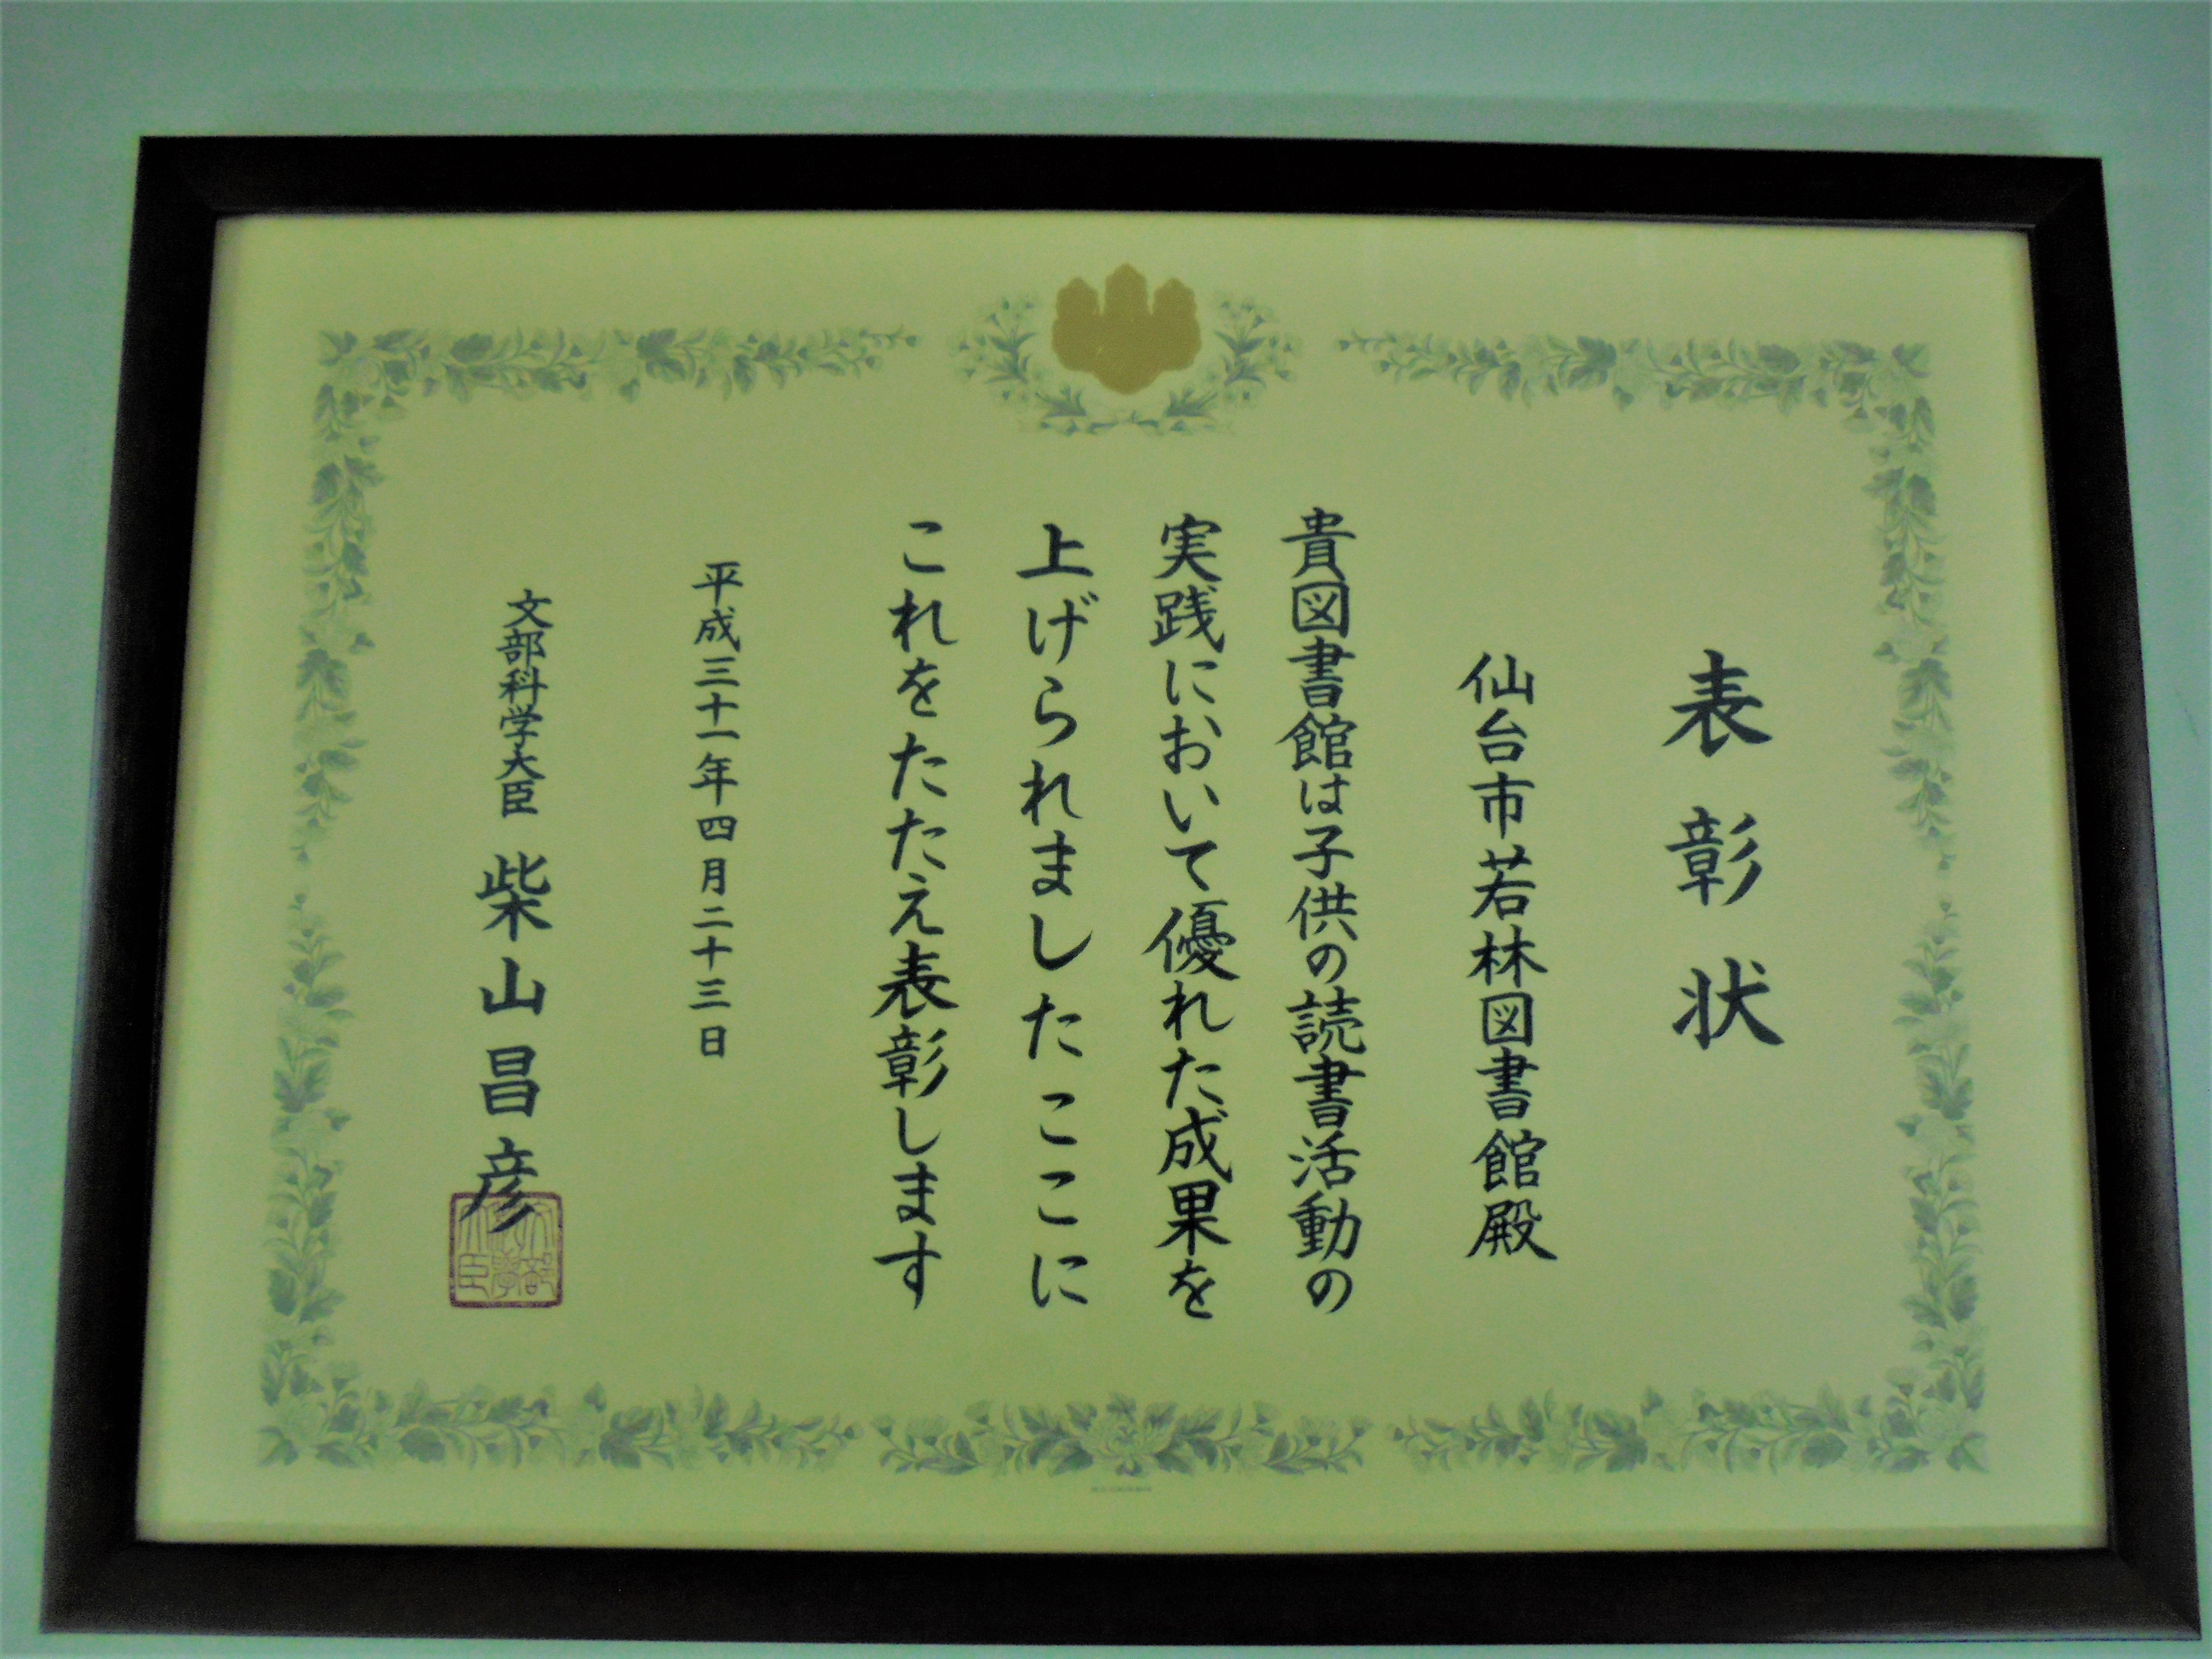 表彰状
仙台市若林図書館殿
貴図書館は子供の読書活動の
実践において優れた成果を
上げられましたここに
これをたたえ表彰します
平成三十一年四月二十三日
文部科学大臣 柴山昌彦